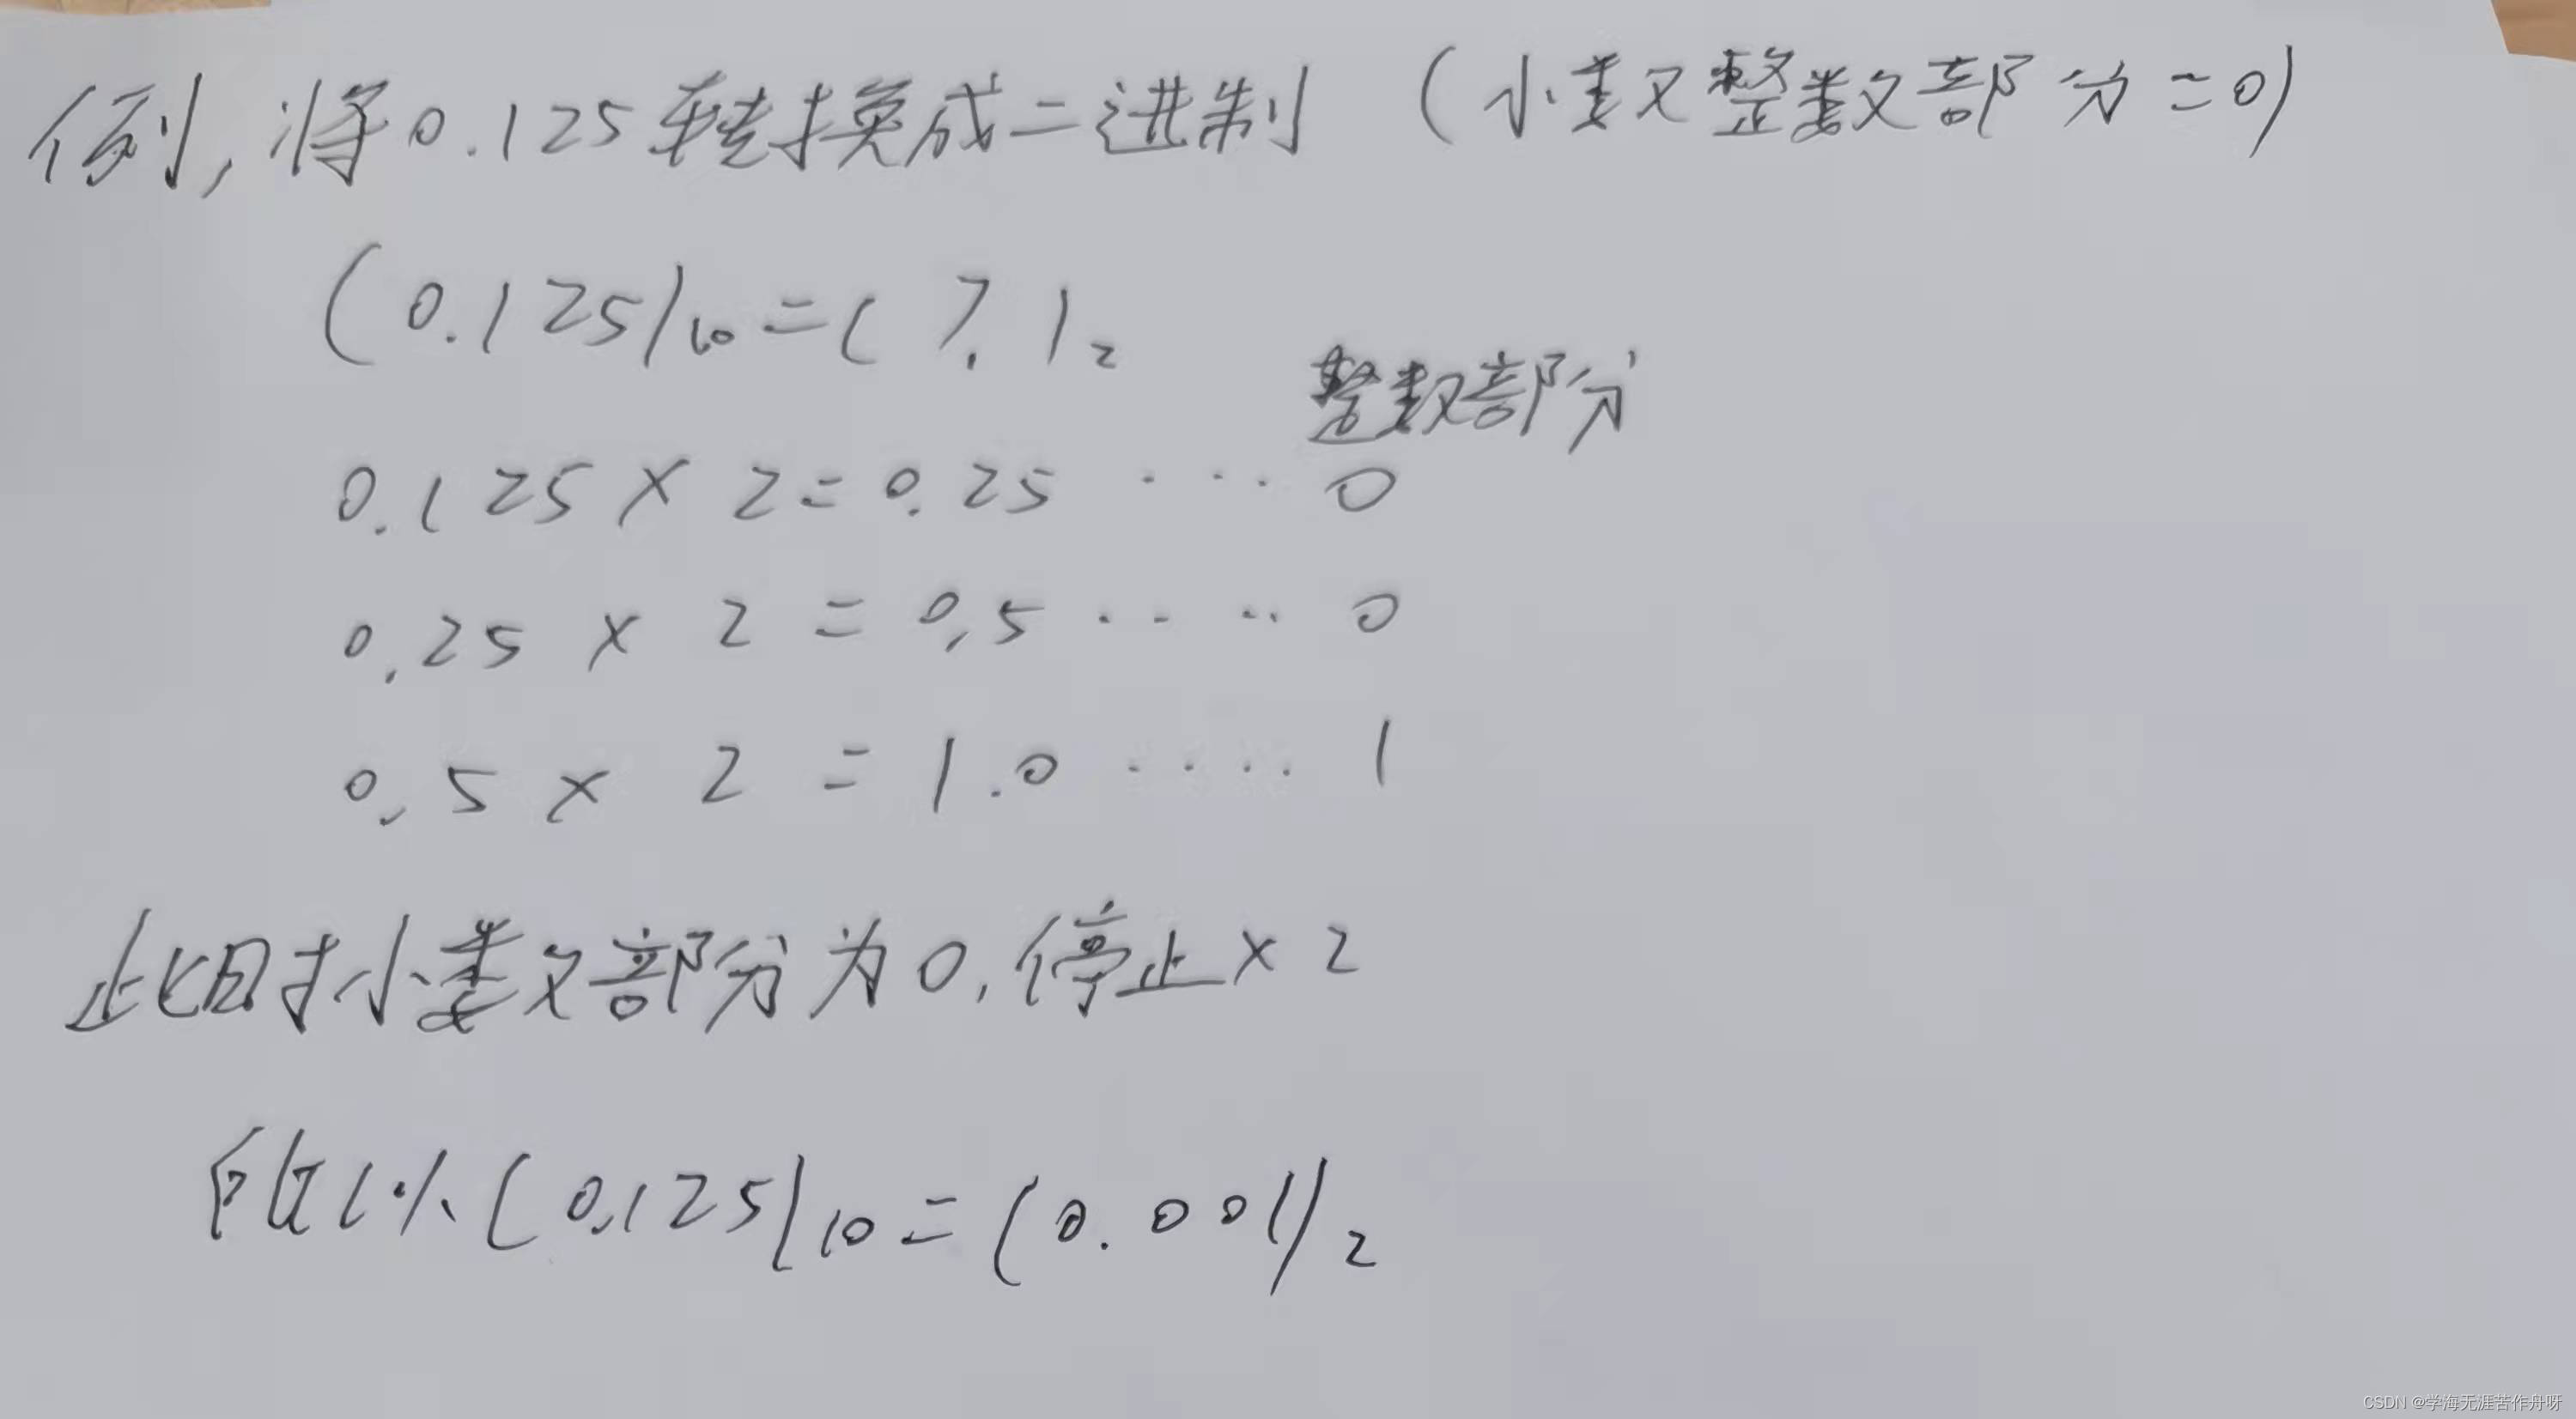 例,将0.125转换成二进制 (小数整数部分=0)
(0.125)10=( ? )2
整数部分
0.125×2=0.25 ··· 0
0.25 × 2 = 0.5 ···· 0
0.5 × 2 = 1.0 ···· 1
此时小数部分为0,停止×2
所以(0.125)10=(0.001)2
CSDN @学海无涯苦作舟呀